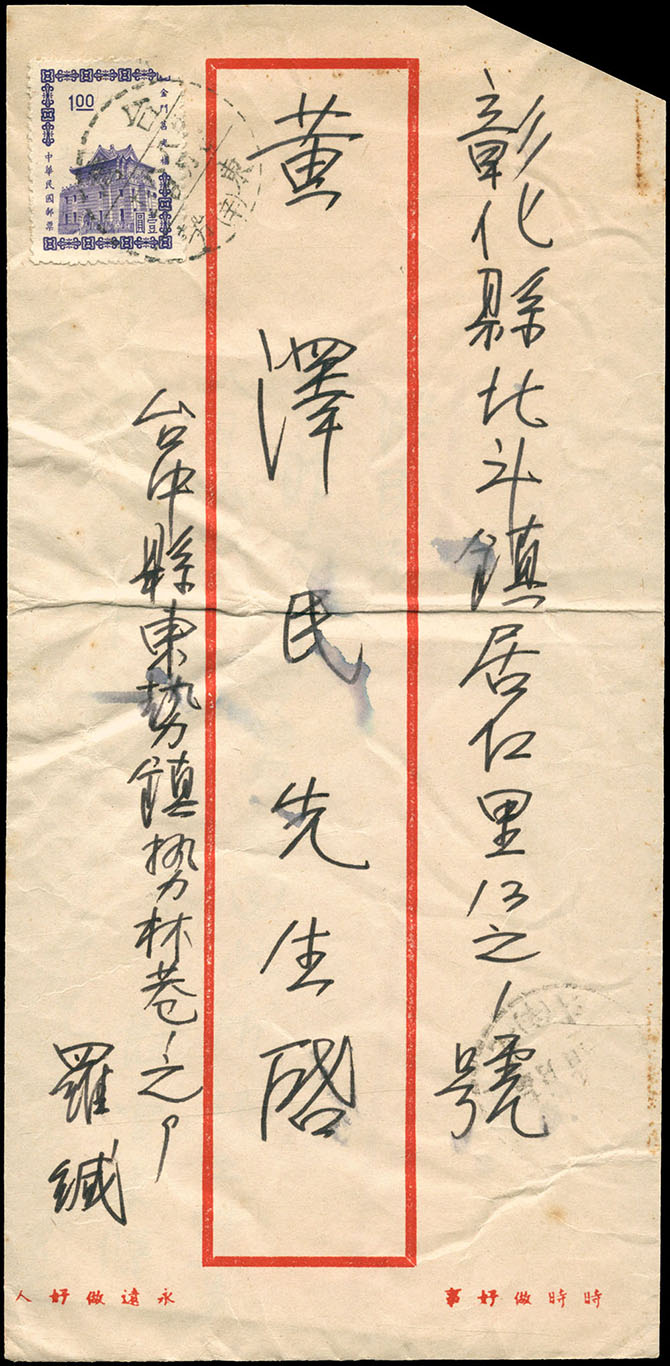 彰化縣北斗鎮居仁里13之1號
黃澤民先生啓
台中縣東勢鎮勢林巷1之9
羅緘
1.00
中華民國郵票
時時做好事
永遠做好人